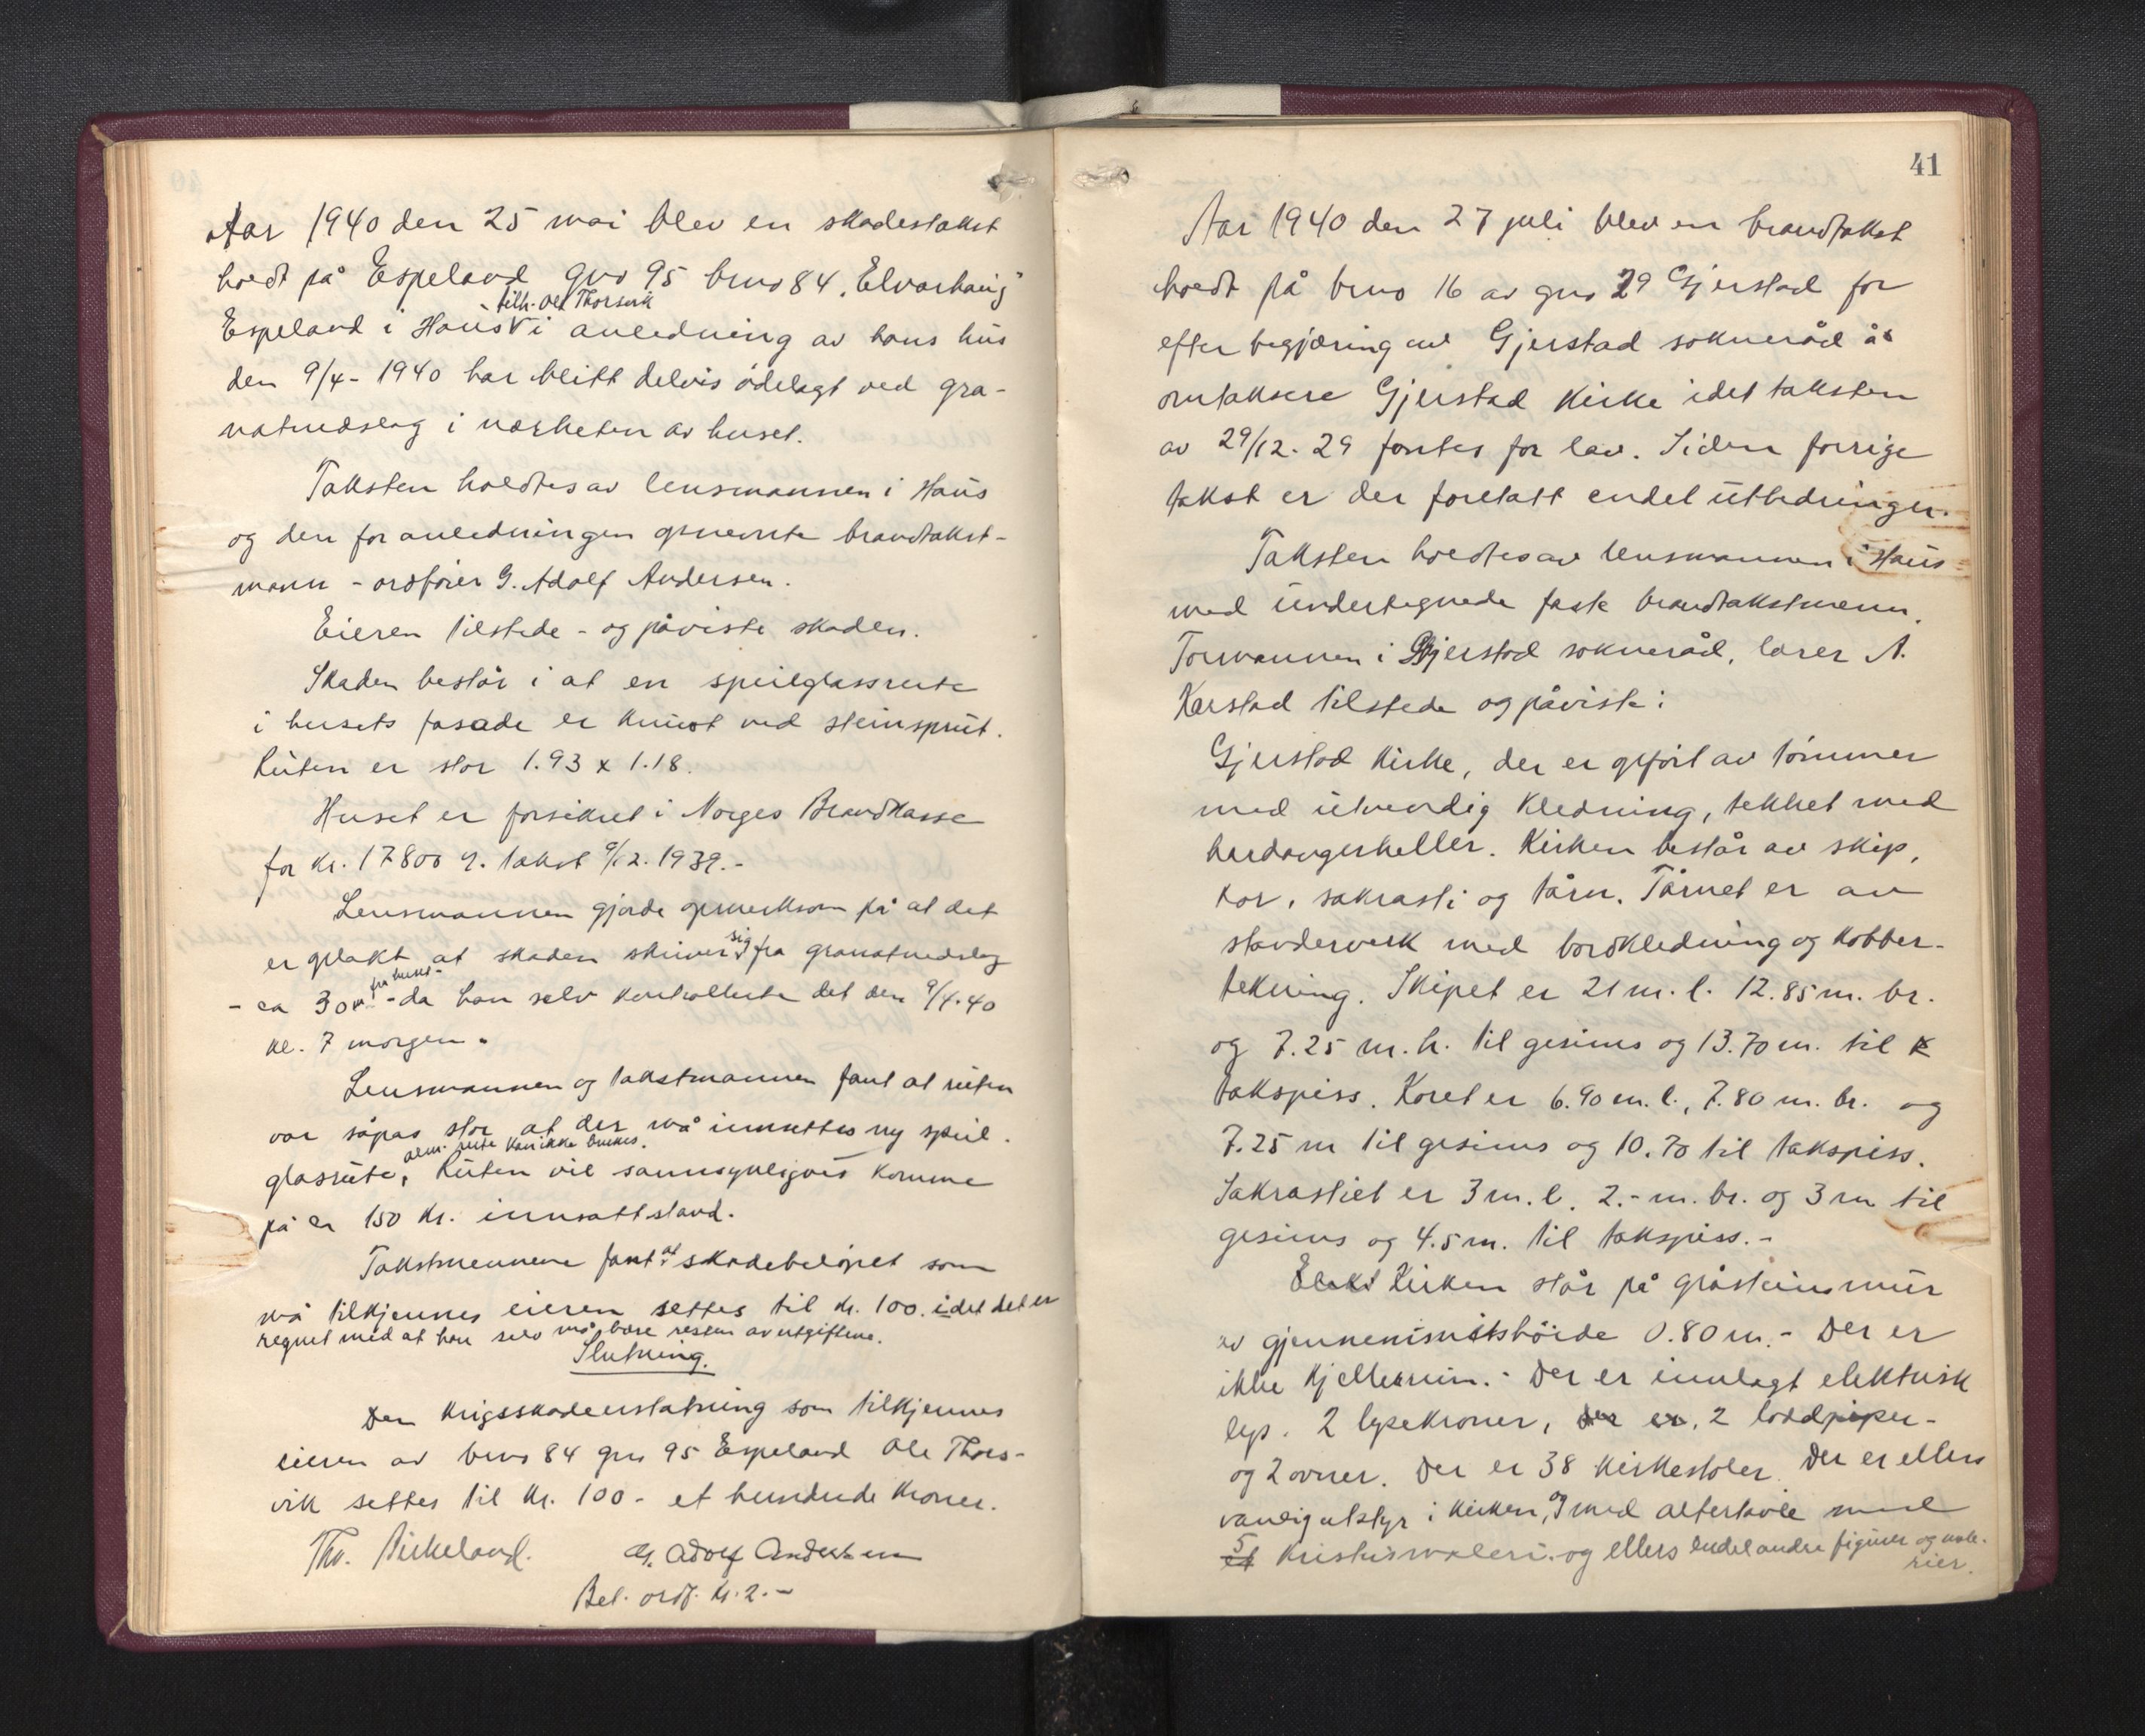 Aar 1940 den 25 mai blev en skadestakst
holdt på Espeland gno 95 bruno 84 "Elvarhaug"
tilh. Ole Thorsvik
Espeland i Haus i anledning av hans hus
den 9/4-1940 har blitt delvis ødelagt ved gra-
natnedslag i nærheten av huset.
Taksten holdtes av lensmannen i Haus
og den for anledningen opnevnte brandtakst-
mann - ordfører G. Adolf Andersen.
Eieren tilstede - og påviste skaden.
Skaden består i at en speilglassrute
i husets fasade er knust ved steinsprut.
Ruten er stor 1.93 x 1.18.
Huset er forsikret i Norges Brandkasse
for kr. 17800 . takst 9/12. 1939.-
Lensmannen gjorde opmerksom på at det
er oplakt at skaden skriver sig fra granatnedslag
fra huset-
- ca 30 m - da han selv kontrollerte det den 9/4.40
kl. 7 morgen.
Lensmannen og takstmannen fant at ruten
var såpas stor at der må innsettes ny speil-
alm. rute kan ikke brukes.
glasrute, Ruten vil sannsynligvis komme
på ca 150 kr. innsatt stand.
Takstmennene fant at skadebeløpet som
må tilkjennes eieren settes til kr. 100. idet det er
regnet med at han selv må bære resten av utgiftene.
Slutning.
Den krigsskadeerstatning som tilkjennes
eieren av bruno 84 gno 95 Espeland Ole Thors-
vik settes til kr. 100 - et hundrede kroner.
Thv. Birkeland. G. Adolf Andersen
Bet. ordf. kr. 2.-
41
Aar 1940 den 27 juli blev en brandtakst
holdt på bruno 16 av gno 29 Gjerstad for
efter begjæring av Gjerstad sokneråd å
omtaksere Gjerstad Kirke idet taksten
av 29/12. 29 fantes for lav. Siden forrige
takst er der foretatt endel utbedringer.
Taksten holdtes av lensmannen i Haus
med undertegnede faste brandtakstmenn.
Formannen i Gjerstad sokneråd, lærer A.
Karstad tilstede og påviste:
Gjerstad Kirke, der er opført av tømmer
med utvendig kledning, tekket med
hardangerheller. Kirken består av skip,
kor, sakrasti og tårn. Tårnet er av
stenderverk med bordkledning og kobber-
tekning. Skipet er 21 m. l. 12.85 m. br.
og 7.25 m. h. til gesims og 13.70 m. til
takspiss. Koret er 6.90 m. l., 7.80 m. br. og
7.25 m til gesims og 10.70 til takspiss.
Sakrastiet er 3 m. l. 2.- m. br. og 3 m til
gesims og 4.5 m. til takspiss.-
Elekt Kirken står på gråsteinsmur
av gjennemsnitshøide 0.80 m.- Der er
ikke kjellerrum.- Der er innlagt elektrisk
lys. 2 lysekroner, der er, 2 loddpiper-
og 2 ovner. Der er 38 kirkestoler. Der er ellers
vanlig utstyr i kirken, og med altertavle med
5 Kristusmaleri. og ellers endel andre figurer og male-
rier.